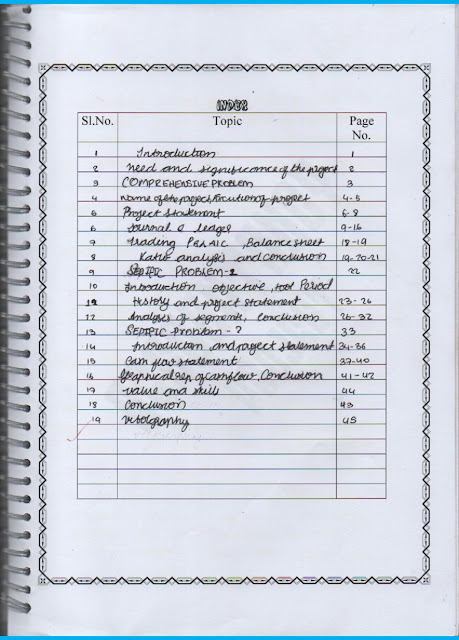 INDEX
Sl.No. Topic Page No.
1 Introduction 1
2 need and significance of the project 2
3 COMPREHENSIVE PROBLEM 3
4 name of the project, location of project 4-5
5 Project statement 6-8
6 Journal & leager 9-16
7 Trading P&L A/C, Balance sheet 18-19
8 Ratio analysis and conclusion 19-20-21
9 PROBLEM-1 22
10 Introduction objective, Period
11 History and project statement 23-26
12 Analysis of segments, conclusion 26-32
13 Problem-2 33
14 Introduction and project statement 34-36
15 Cash flow statement 37-40
16 Graphical rep of cashflow, Conclusion 41-42
17 value and skills 44
18 Conclusion 43
19 45